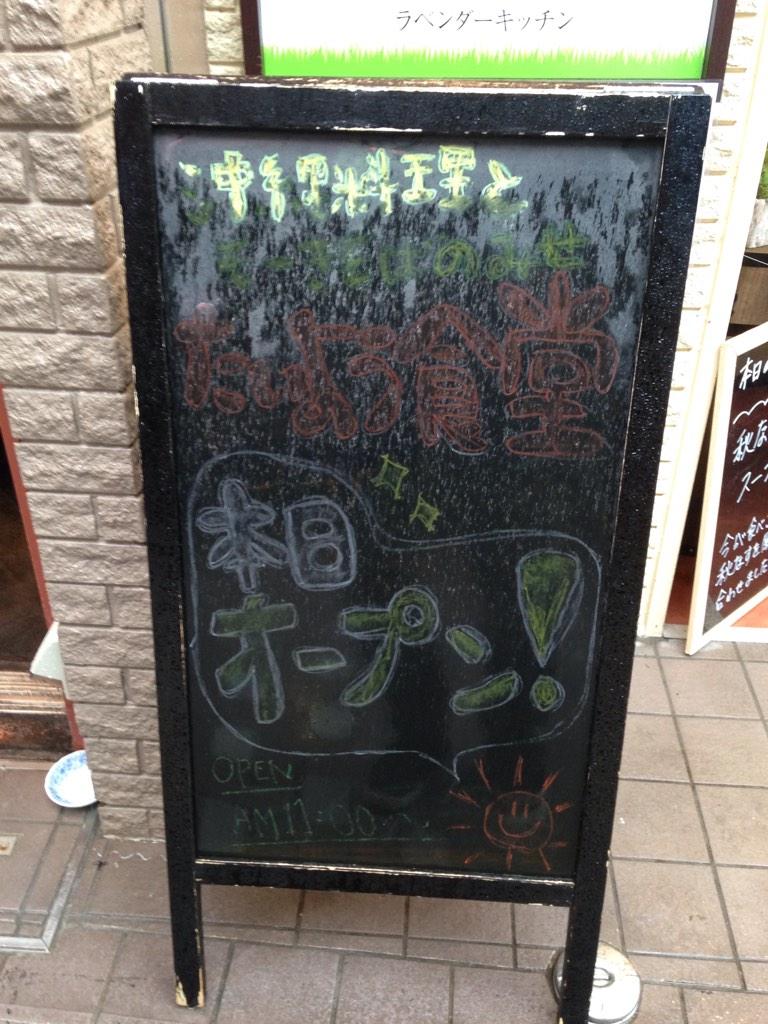 ラベンダーキッチン
沖縄料理と
そーきそばのみせ
たいよう食堂
本日
オープン!
OPEN
AM11:00〜
本日
秋な
スー
今が食べご
秋なすを
合わせました